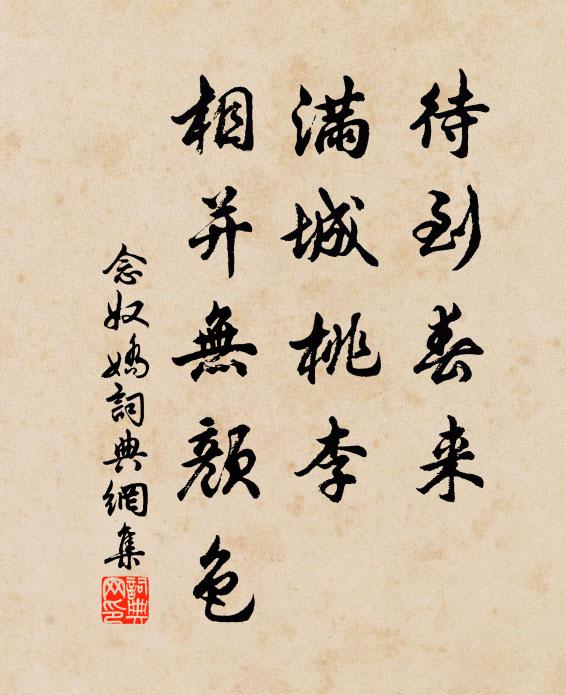 待到春来
满城桃李
相并無颜色
念奴嬌詞典網集
詞典
网印